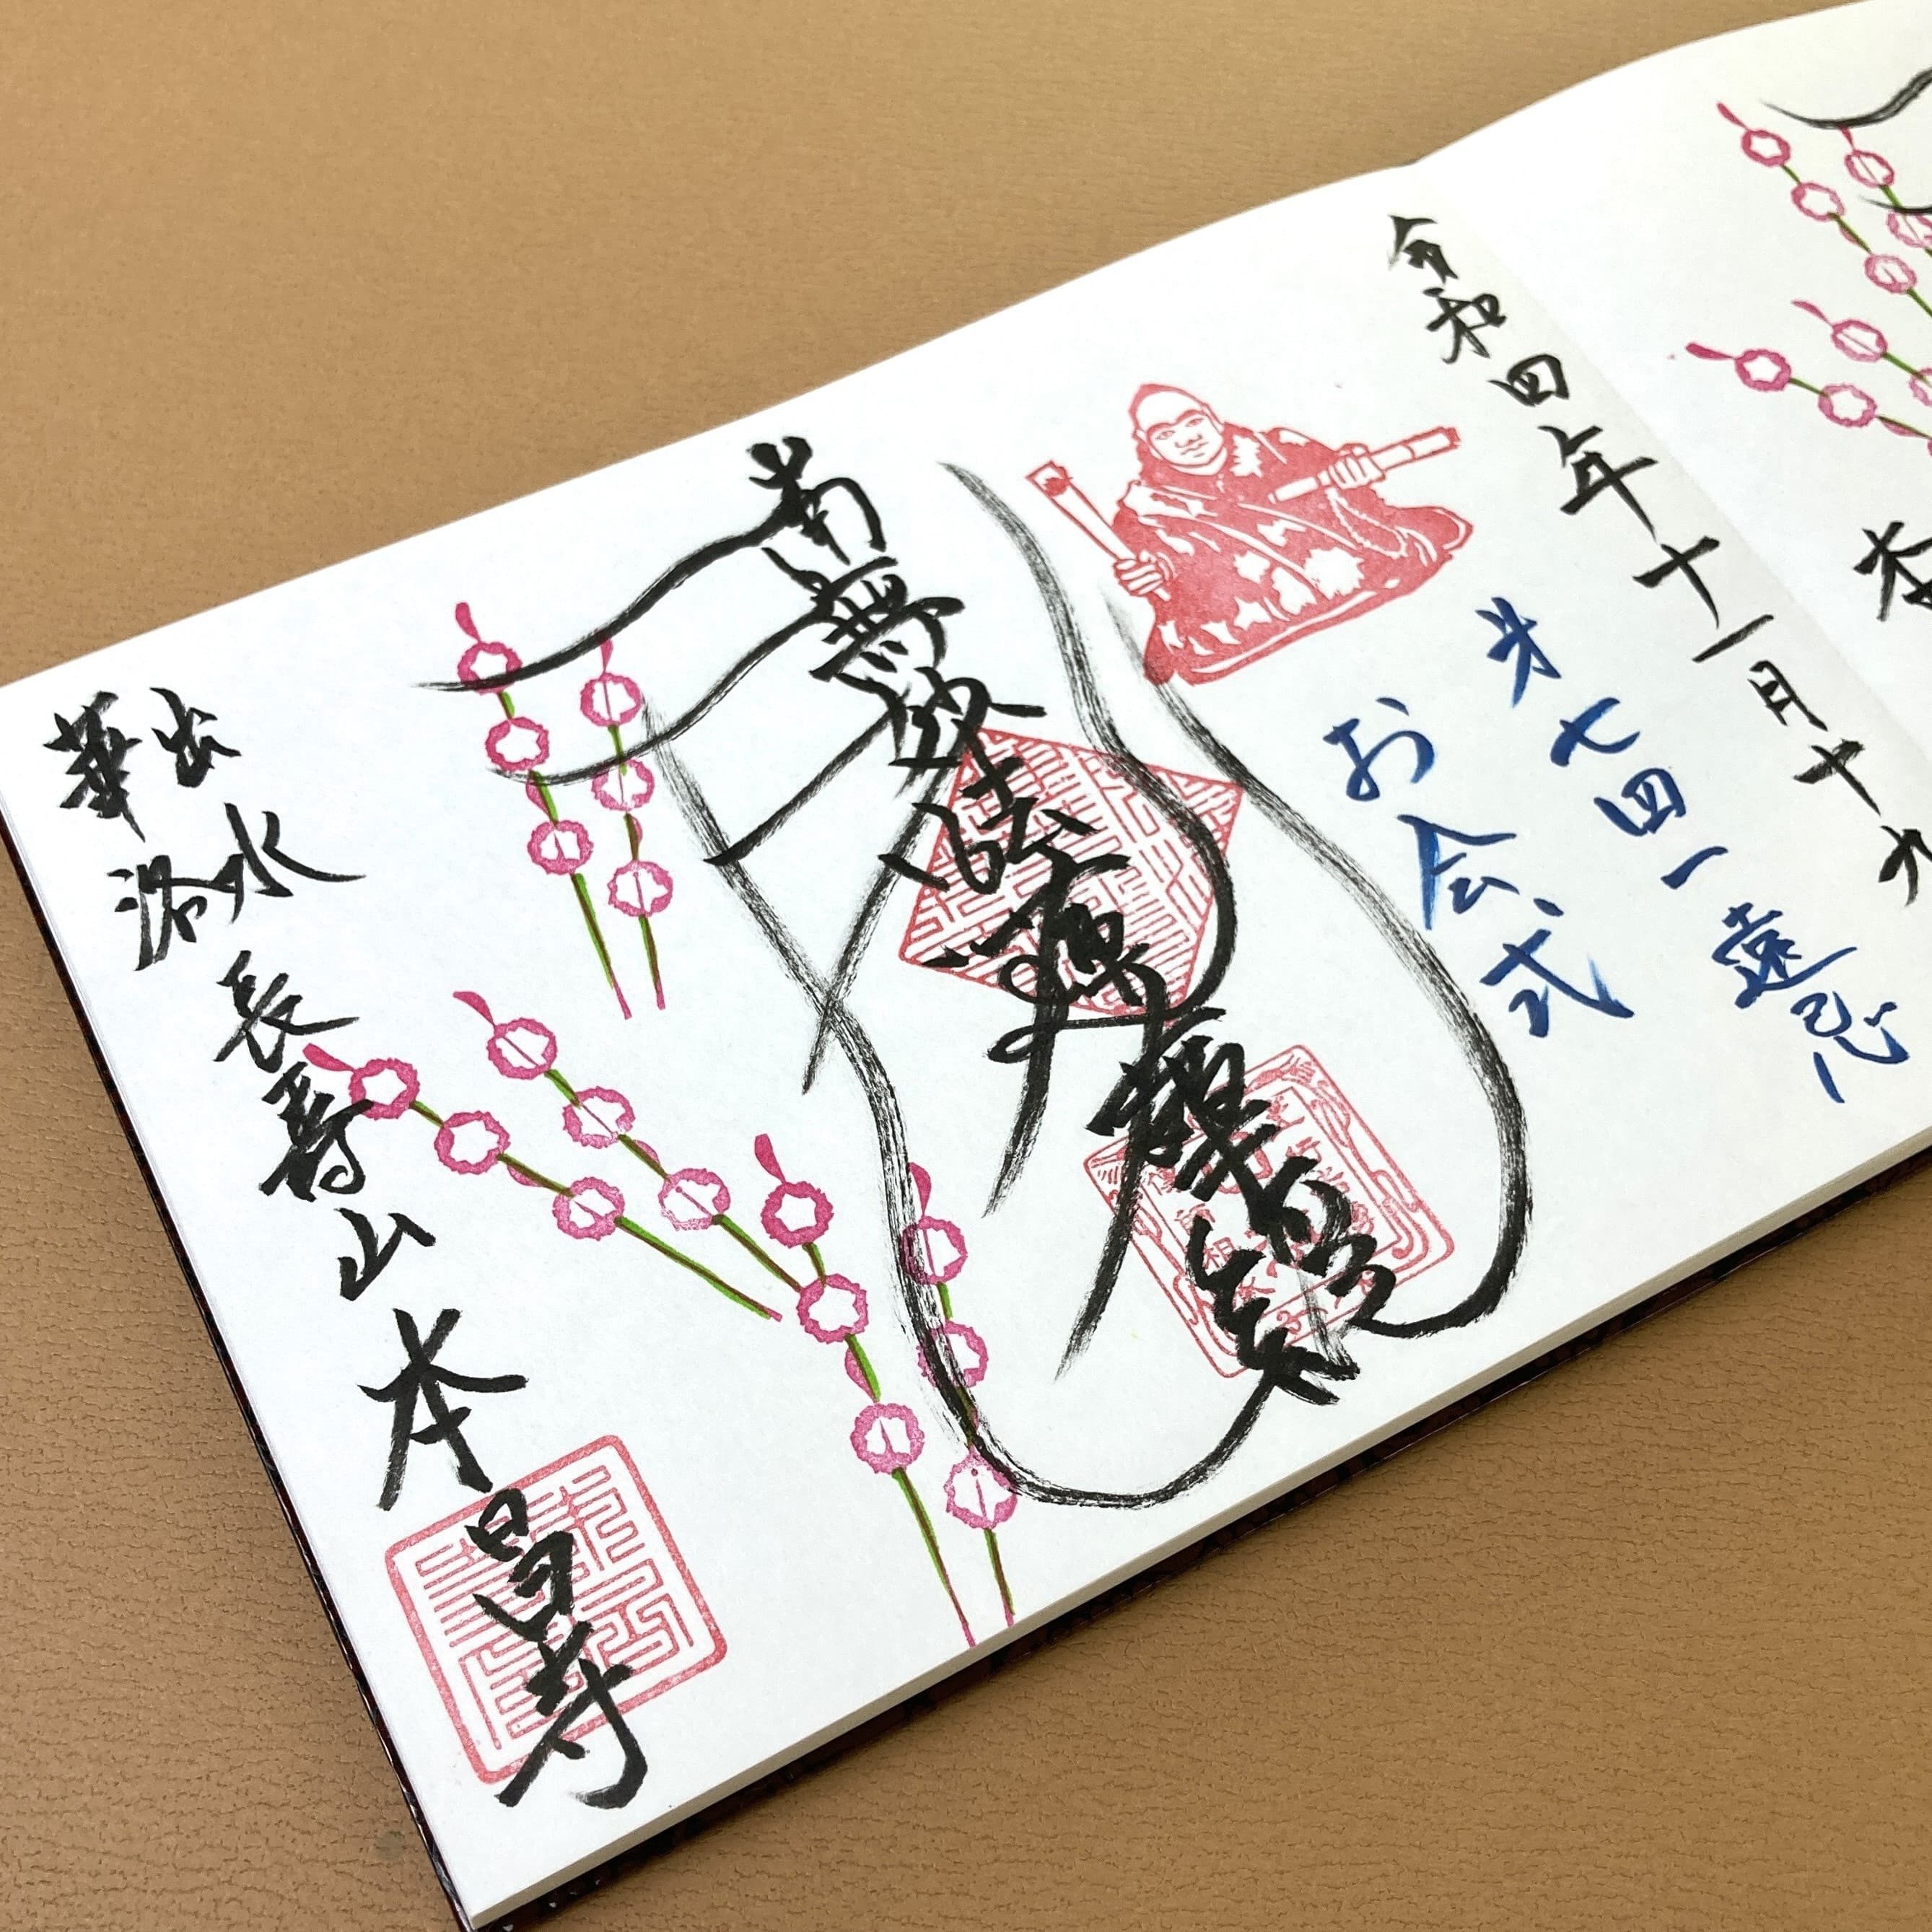 令和四年十一月十九
第七四一遠忌
お会式
南無妙法蓮華経
出水
華洛
長壽山
本昌寺
本